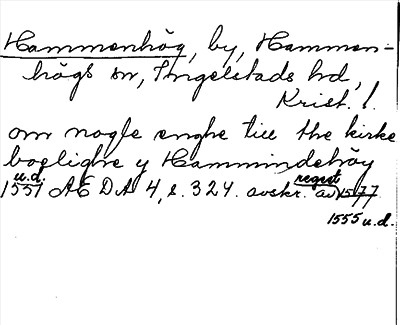 Hammenhög, by, Hammen-
högs sn, Ingelstads hd,
Krist. l.
om nogle enghe till the kirke
boelighe y Hammindehöy
u.d.
1551 AE DA 4, s. 324. avskr. regest av 1577
1555 u.d.